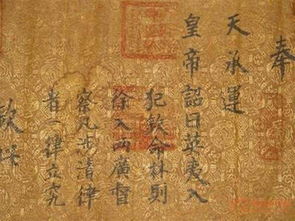 奉
天承運
皇帝詔曰英夷入
犯欽命林則
徐入兩廣督
察凡步清律
者一律立究
欽此